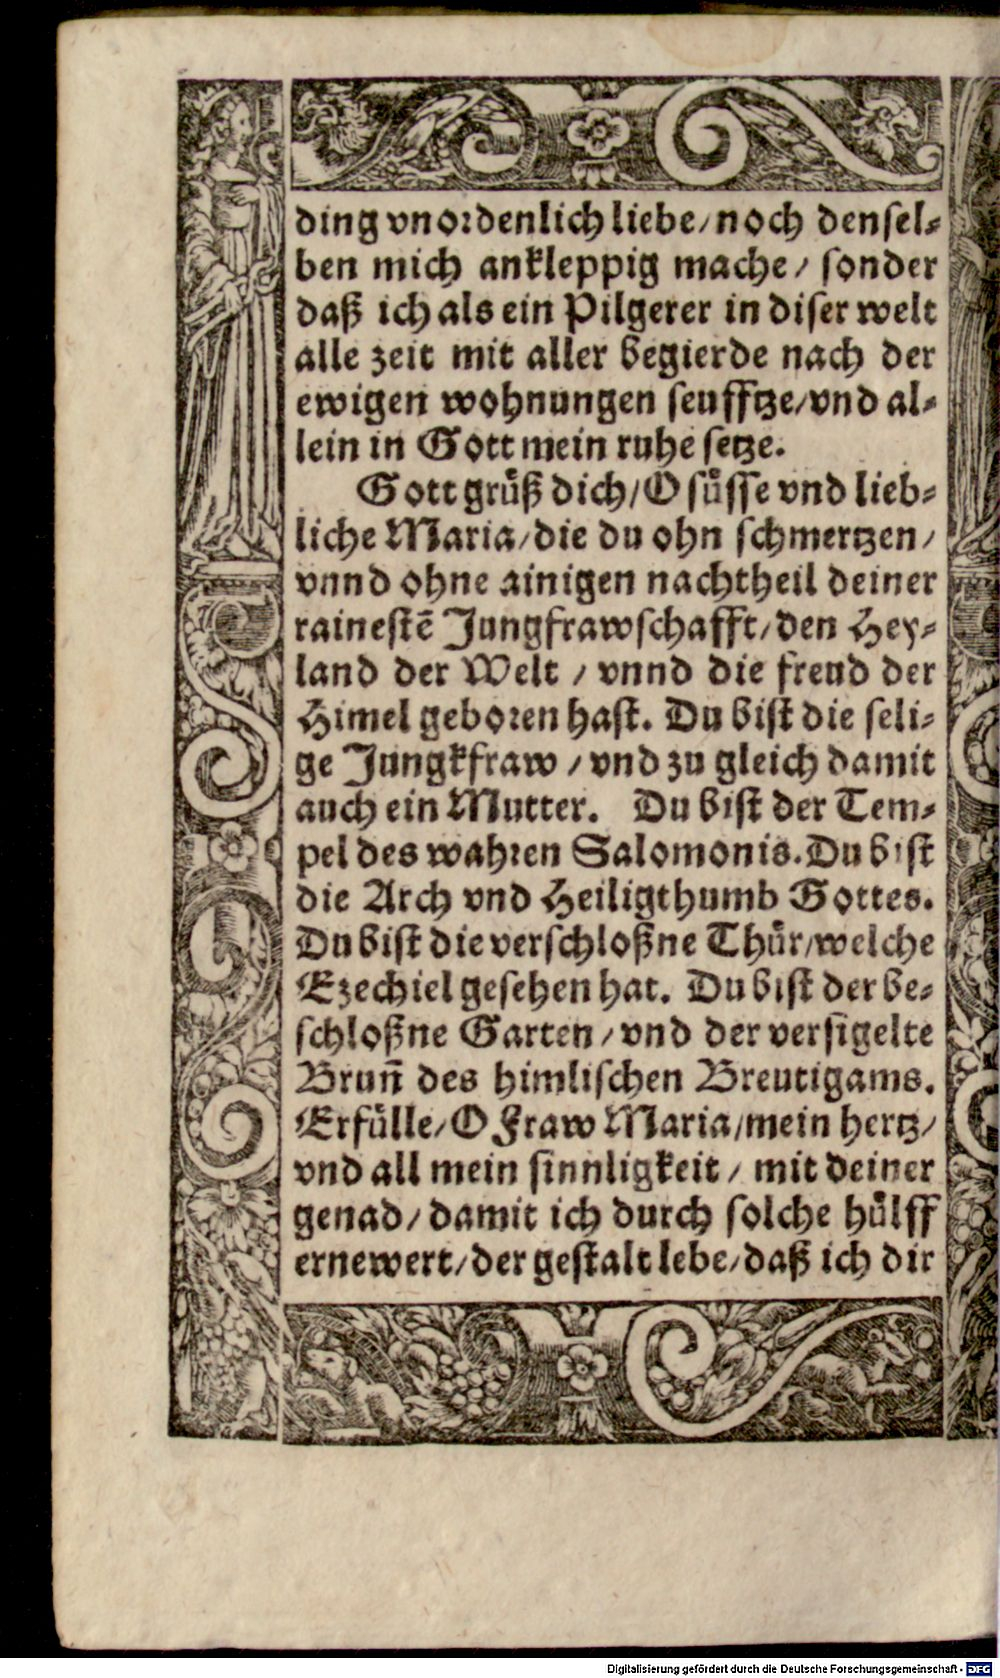 ding vnordenlich liebe/ noch densel⸗
ben mich ankleppig mache/ sonder
daß ich als ein Pilgerer in diser welt
alle zeit mit aller begierde nach der
ewigen wohnungen seufftze/ vnd al⸗
lein in Gott mein ruhe setze.
Gott grůß dich/ O sůsse vnd lieb⸗
liche Maria/ die du ohn schmertzen/
vnnd ohne ainigen nachtheil deiner
rainestē Jungfrawschafft/ den Hey⸗
land der Welt / vnnd die freud der
Himel geboren hast. Du bist die seli⸗
ge Jungkfraw / vnd zu gleich damit
auch ein Mutter. Du bist der Tem⸗
pel des wahren Salomonis. Du bist
die Arch vnd Heiligthumb Gottes.
Du bist die verschloßne Thůr/ welche
Ezechiel gesehen hat. Du bist der be⸗
schloßne Garten/ vnd der versigelte
Brun̄ des himlischen Breutigams.
Erfůlle/ O Fraw Maria/ mein hertz/
vnd all mein sinnligkeit/ mit deiner
genad/ damit ich durch solche hůlff
ernewert/ der gestalt lebe/ daß ich dir
Digitalisierung gefördert durch die Deutsche Forschungsgemeinschaft - DFG